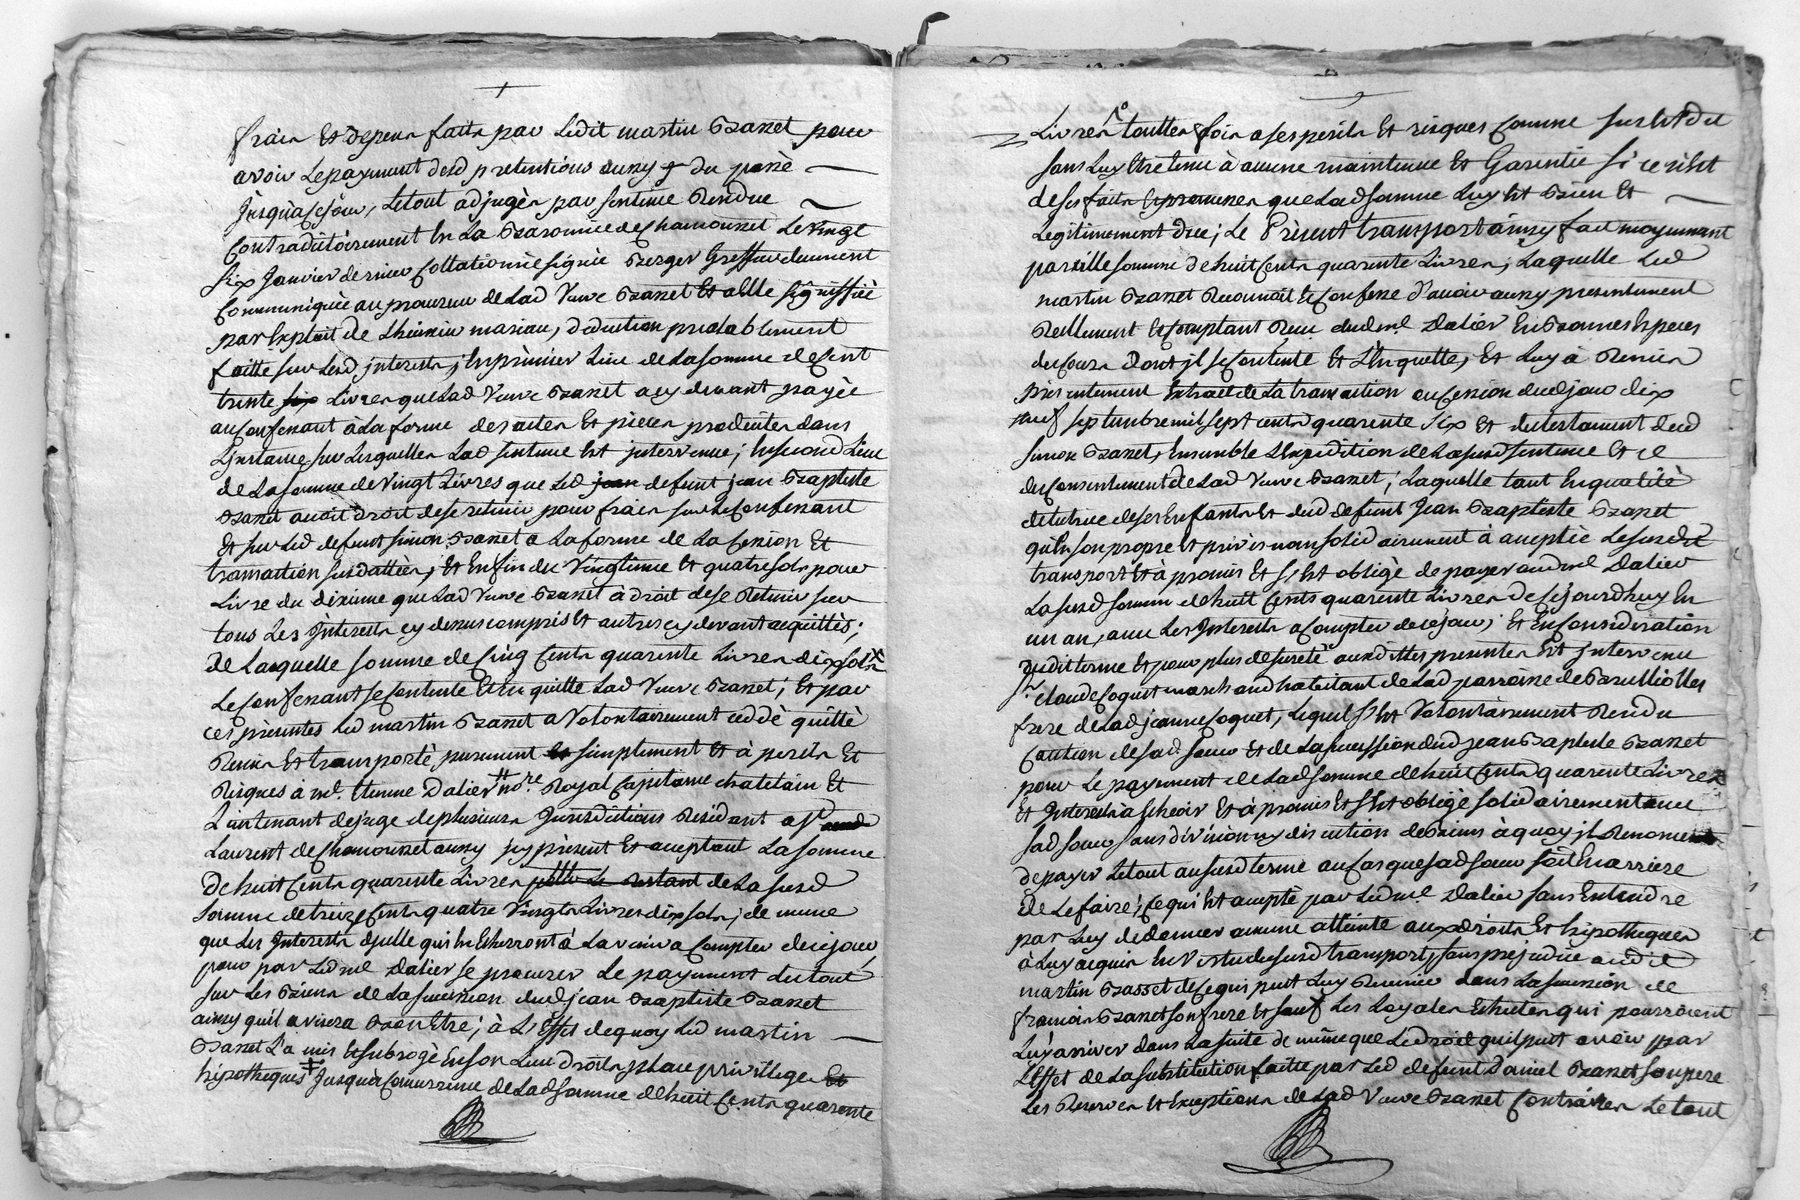 frais Et depens faits par Ledit martin Basset pour
avoir Le payment desd pretentions du passé
Jusqu'a ce jour, Le tout adjugés par sentence Rendüe
Contradictoirement En La Baronnie de Chamounet Le vingt
six Janvier dernier Collationnée signée Berger Greffier duement
Communiquée au procureur de Lad Veuve Basset Et a Elle signiffiée
par Exploit de L'huissier mariau, déduction prealablement
faitte sur Lesd interests, En premier Lieu de La somme de Cent
trente six Livres que Lad Veuve Basset a cy devant payée
au Confenant à La forme des actes Et pieces produites dans
L'instance sur Lesquelles Lad sentence Est intervenue; En second Lieu
de La somme de Vingt Livres que Led jean defunt jean Baptiste
Basset avoit droit de se retenir pour frais sur Le Confenant
Et sur Led defunt simon Basset a La forme de La Cession Et
transaction susdattées, Et Enfin du Vingtieme Et quatre sols pour
Livre du dixieme que Lad Veuve Basset a droit de se Retenir sur
tous Les Interests cy dessus compris Et autres cy devant acquittés;
de Laquelle somme de Cinq Cents quarente Livres dix sols
Le Confenant se Contente Et En quitte Lad Veuve Basset; Et par
ces présentes Led martin Basset a Volontairement ceddé quitté
Remis Et transporté, purement Et simplement Et à perils Et
Risques à me. Etienne Dalier nore. Royal Capitaine chatelain Et
Lieutenant de juge de plusieurs Jurisdictions Residant a St
Laurent de Chamounet aussy icy présent Et acceptant La somme
de huit Cents quarente Livres pour Le restant de La susd
somme de treize Cents quatre Vingts Livres dix sols, de meme
que Les Interests d'icelle qui En Echerront à L'avenir a Compter de ce jour,
pour par Led me Dalier se procurer Le payement du tout
sur Les Biens de La succession dud jean Baptiste Basset
ainsy qu'il avisera Bon Etre; à L'Effet de quoy Led martin
Basset L'a mis Et subrogé En son Lieu droits place privilege Et
hipotheques Jusqu'a Concurrence de Lad somme de huit Cents quarente
Livres touttes fois a ses perils Et risques Comme sus Est dit
sans Luy Etre tenu à aucune maintenue Et Garentie si ce n'Est
de ses faits Et promesses que Lad somme Luy Est Bien Et
Legitimement due; Le Présent transport ainsy fait moyennant
pareille somme de huit Cents quarente Livres, Laquelle Led
martin Basset Reconnoit Et Confesse d'avoir aussy presentement
Réellement Et Comptant Reçu dud me Dalier En Bonnes Especes
du Cours Dont il se Contente Et L'En quitte, Et Luy à Remis
présentement Extrait de La transaction ou Cession dud jour dix
neuf septembre mil sept cents quarente six Et du testament dud
simon Basset, Ensemble L'Expedition de La susd sentence Et ce
du Consentement de Lad Veuve Basset; Laquelle tant En qualité
de tutrice de ses Enfants Et dud defunt Jean Baptiste Basset
qu'En son propre Et privé nom solidairement à accepté Le susdit
transport Et à promis Et s'Est obligé de payer aud me Dalier
La susd somme de huit Cents quarente Livres de ce jourdhuy En
un an, avec Les Interests a Compter de ce jour; Et En Consideration
dudit terme Et pour plus de sureté auxdittes presentes Est intervenu
sr Claude Coquet marchand habitant de Lad parroisse de
frere de Lad jeanne Coquet, Lequel s'Est Volontairement Rendu
Caution de sad. soeur Et de La succession dud jean Baptiste Basset
pour Le payment de Lad somme de huit Cents quarente Livres
Et Interests a Echeoir Et à promis Et s'Est obligé solidairement avec
sad soeur sans division ny discution de biens à quoy il Renonce
de payer Le tout au susd terme au Cas que sad soeur soit En arriere
de Le faire; ce qui Est accepté par Led me Dalier sans Entendre
par Luy de donner aucune atteinte aux droits Et hipotheques
à Luy acquis En Vertu du susd transport, sans prejudice audit
martin Basset de ce qui peut Luy Revenir dans La succession de
francois Basset son frere Et sauf Les Loyales Echutes qui pourroient
Luy arriver dans La suite de même que Le droit qu'il peut avoir par
L'Effet de La substitution faitte par Led defunt Daniel Basset son pere
Les Reserves Et Exceptions de Lad Veuve Basset Contraires Le tout